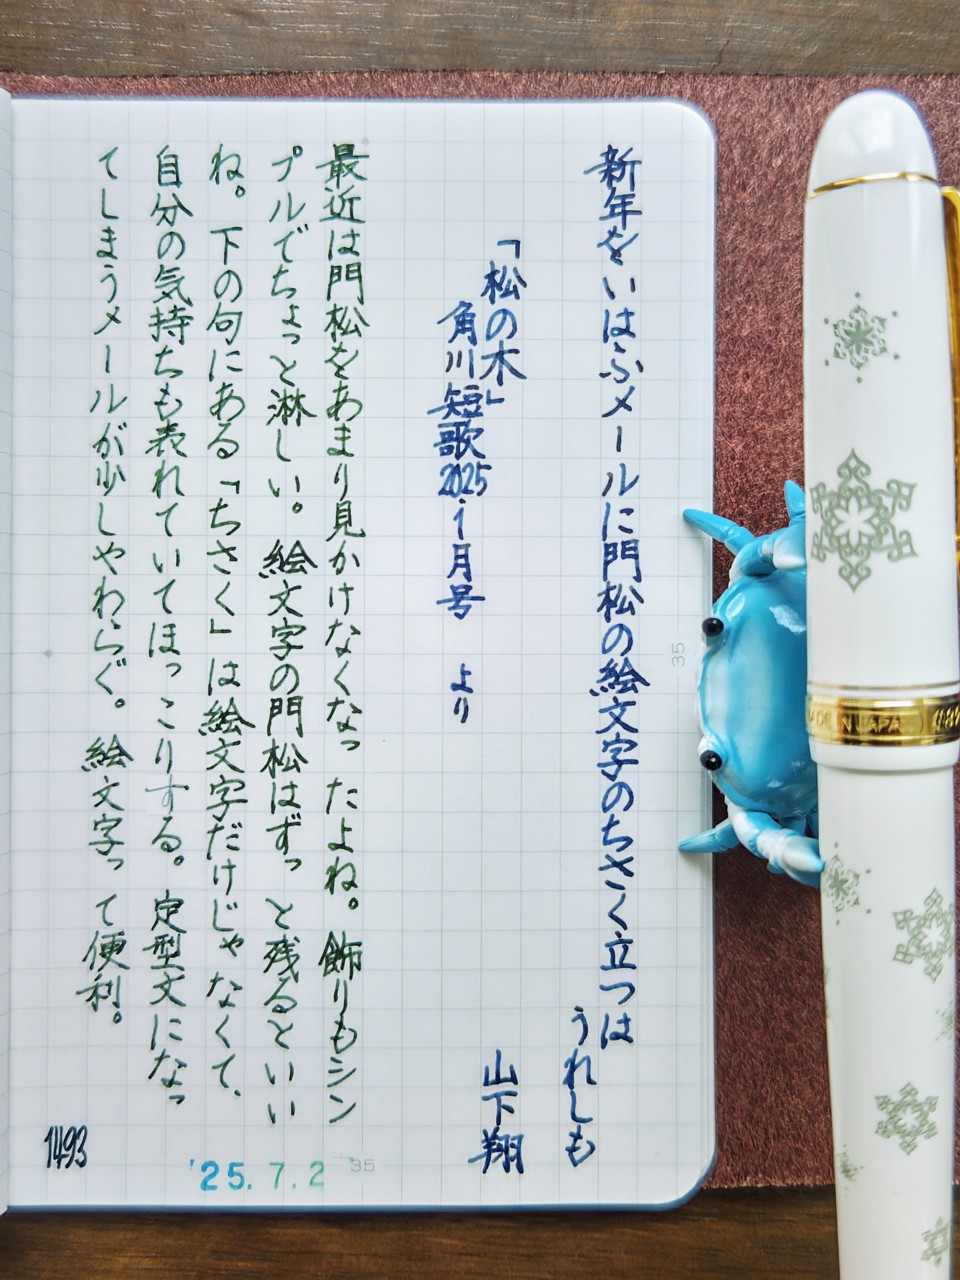 新年をいはふメールに門松の絵文字のちさく立つは
うれしも
山下翔
「松の木」
角川短歌2025.1月号 より
最近は門松をあまり見かけなくなったよね。飾りもシン
プルでちょっと淋しい。絵文字の門松はずっと残るといい
ね。下の句にある「ちさく」は絵文字だけじゃなくて、
自分の気持ちも表れていてほっこりする。定型文になっ
てしまうメールが少しやわらぐ。絵文字って便利。
1493
'25.7.2
35
35
MADE IN JAPAN